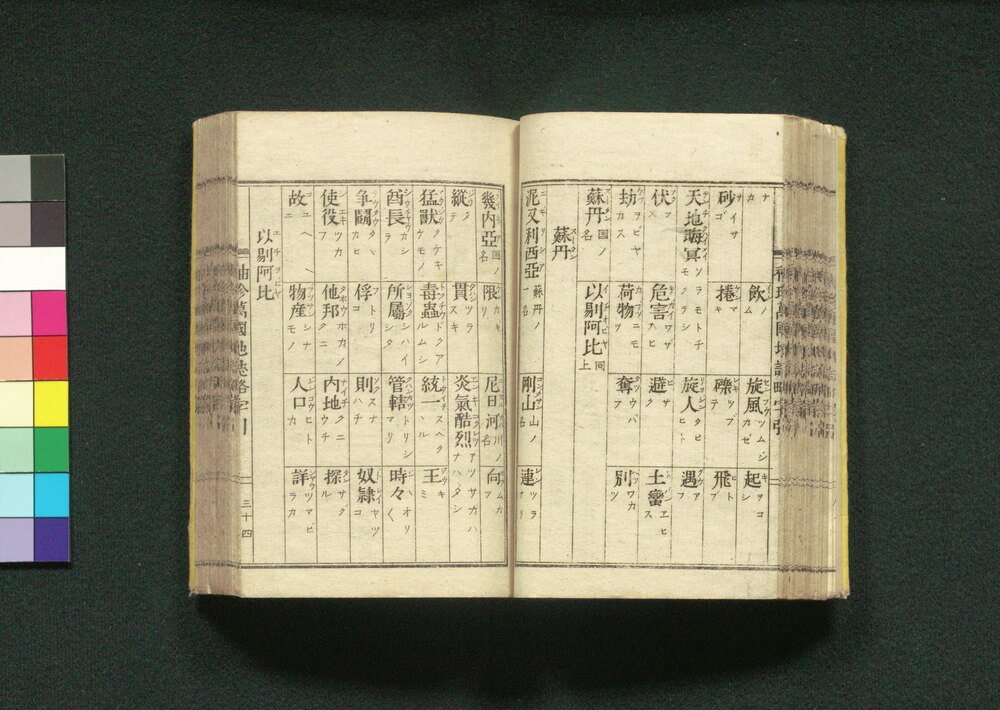 ナカ 飲ノム 旋風ツムジカゼ 起ヲコシ
砂イサゴ 捲マキ 礫ツブテ 飛トビ
天地晦冥ソラモトチモクラシ 旋人タビヒト 遇アフ
伏フス 危害 避サケ 土蠻ヱビス
劫ヲビヤカス 荷物ニモツ 奪ウバフ 別ワカツ
蘇丹國ノ名 以剔阿比同上
蘇丹
泥又利西亞蘇丹ノ一名 剛山山ノ名 連ツラナリ
幾内亞國ノ名 限カギリ 尼日河川ノ名 向ムカフ
縱タテ 貫ツラヌキ 炎氣酷烈アツサガハナハダシ
猛獸タケキケモノ 毒蟲ドクアルムシ 統一スベクヽル 王キミ
酋長カシラ 所屬シハイシタ 管轄トリシマリ 時々ヲリ〱
争鬪タヽカヒ 俘トリコ 則スナハチ 奴隷ヤツコ
使役ツカフ 他邦ホカノクニ 内地クニウチ 探サグル
故ユヘニ 物産シナモノ 人口ヒトカズ 詳ツマビラカ
以剔阿比
袖珍萬國地誌略字引 三十四